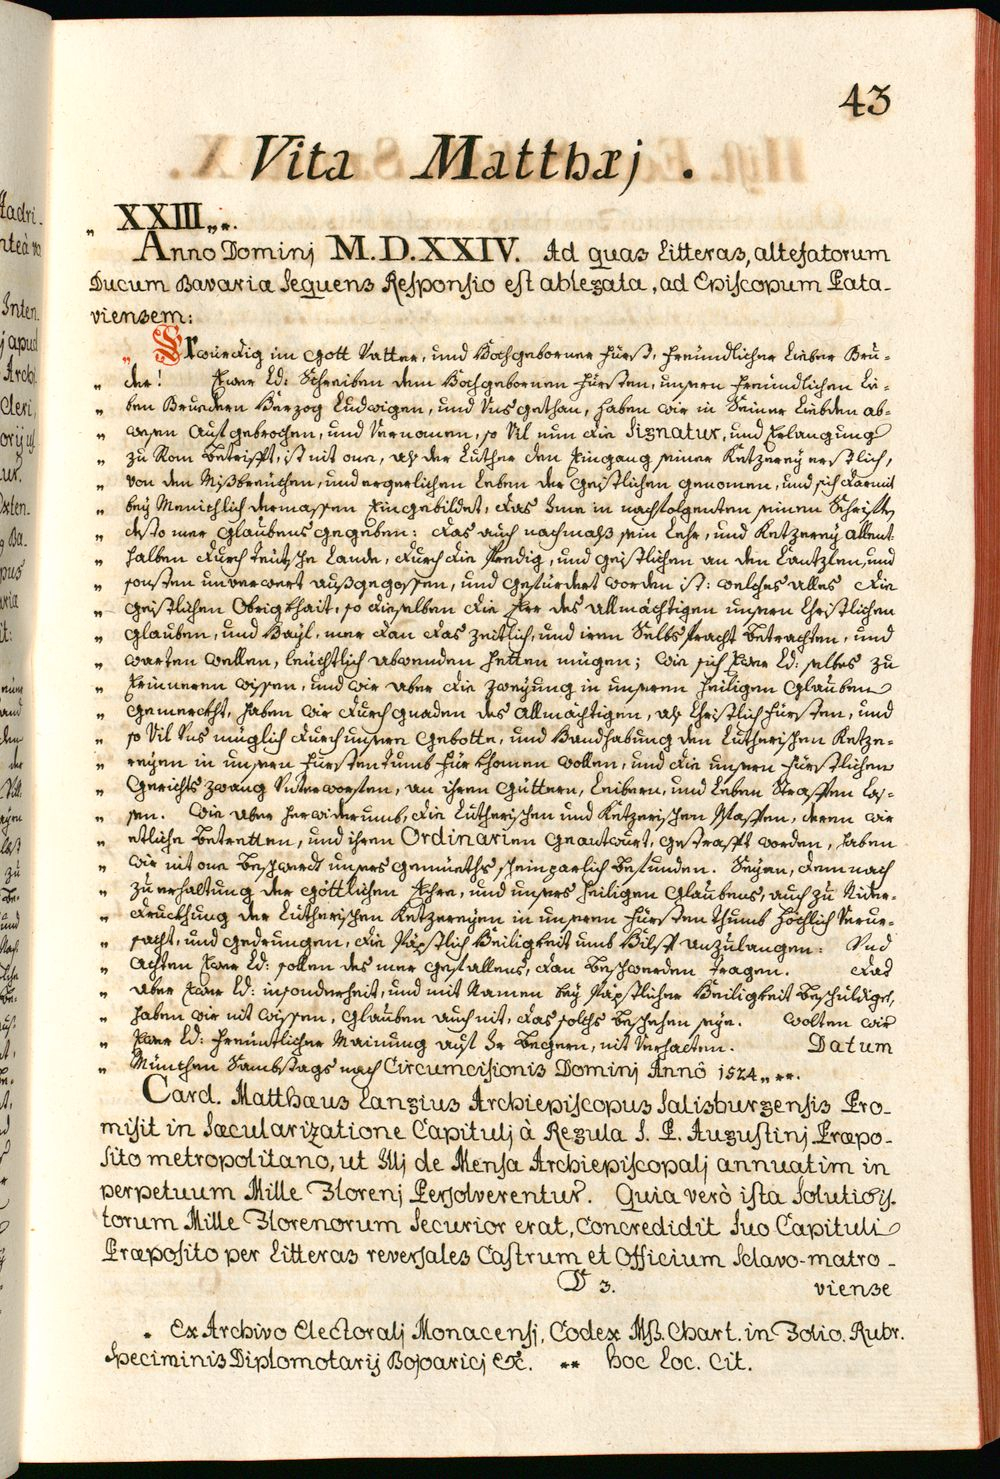 43
Vita Matthæj.
„ XXIII„*.
Anno Dominj M.D.XXIV. Ad quas Litteras, altefatorum
Ducum Bavariæ sequens Responsio est ablegata, ad Episcopum Pata-
viensem:
„ Erwürdig im Gott Vatter, und Hochgeborner Fürst, Freündlicher Lieber Bru-
„ der! Ewer Ld: Schreiben dem Hochgebornen Fürsten, unsern Freündlichen Lie-
„ ben Bruedern Herzog Ludwigen, und Uns gethan, haben wir in Seiner Liebden ab-
„ wesen Aufgebrochen, und Vernomen, so Vil nun die Signatur, und Erlangung
„ zu Rom Betrifft, ist nit one, als der Luther den Eingang seiner Ketzerey erstlich,
„ von den Mißbreuchen, und ergerlichen Leben der Geistlichen genomen, und sich darmit
„ bey Menichlich dermassen Eingebildet, das Ime in nachfolgenten seinen Schrifften
„ desto mer Glaubens gegeben: das auch nachmals sein Lehr, und Ketzerey allent-
„ halben durch Teutsche Lande, durch die Predig, und Geistlichen an den Cantzlen, und
„ sonsten unverwert außgegossen, und Gefürdert worden ist: welches alles die
„ Geistlichen Obrigkhait, so dieselben die Eer des Allmächtigen unsern Christlichen
„ Glauben, und Hayl, mer dan das zeitlich, und iren Selbs Pracht Betrachten, und
„ warten wellen, leüchtlich abwenden hetten mügen; wie sich Ewer Ld: selbes zu
„ Erinneren wissen, und wir aber die zweyung in unseren Heiligen Glauben
„ Gemerckht, haben wir durch gnaden des Allmächtigen, als Christlich Fürsten, und
„ so Vil Uns müglich durch unsere Gebotte, und Handhabung den Lutherischen Ketze-
„ reyen in unsern Fürstentumb Fürkhomen wollen, und die unsern Fürstlichen
„ Gerichts zwang Unterworffen, an ihren Güttern, Leibern, und Leben Straffen las-
„ sen. Wie aber herwiderumb, die Lutherischen und Ketzerischen Pfaffen, deren wir
„ etliche Betretten, und ihren Ordinarien Geantwurt, Gestrafft worden, haben
„ wir nit one Beschwerdt unsers Gemüeths scheinparlich Befunden. Seyen, demnach
„ zu erhaltung der Göttlichen Ehre, und unsers Heiligen Glaubens, auch zu Nider-
„ druckhung der Lutherischen Ketzereyen in unseren Fürstenthumb Höchlich Verur-
„ sacht, und Gedrungen, die Päpstlich Heiligkeit umb Hilff anzulangen: Und
„ Achten Ewer Ld: sollen des mer Gefallens, dan Beschwerden tragen. Das
„ aber Ewer Ld: insonderheit, und mit Namen bey Päpstlicher Heiligkeit Beschuldiget,
„ haben wir nit wissen, Glauben auch nit, das solchs Beschehen seye. Wolten wir
„ Ewer Ld: Freüntlicher Mainung auf Ir Begern, nit Verhalten. Datum
„ München Sambstags nach Circumcisionis Dominj Anno 1524„**.
Card. Matthæus Langius Archiepiscopus Salisburgensis Pro-
misit in Sæcularizatione Capitulj à Regula S. P. Augustinj Præpo-
sito metropolitano, ut Illj de Mensa Archiepiscopalj annuatim in
perpetuum Mille Florenj Persolverentur. Quia verò ista Solutio is-
torum Mille Florenorum Securior erat, Concredidit Suo Capituli
Præposito per Litteras reversales Castrum et Officium Sclavo-matro-
D 3. viense
* Ex Archivo Electoralj Monacensj, Codex Mß. Chart. in Folio. Rubr.
Speciminis Diplomotarij Bojoaricj &c. ** hoc Loc. Cit.